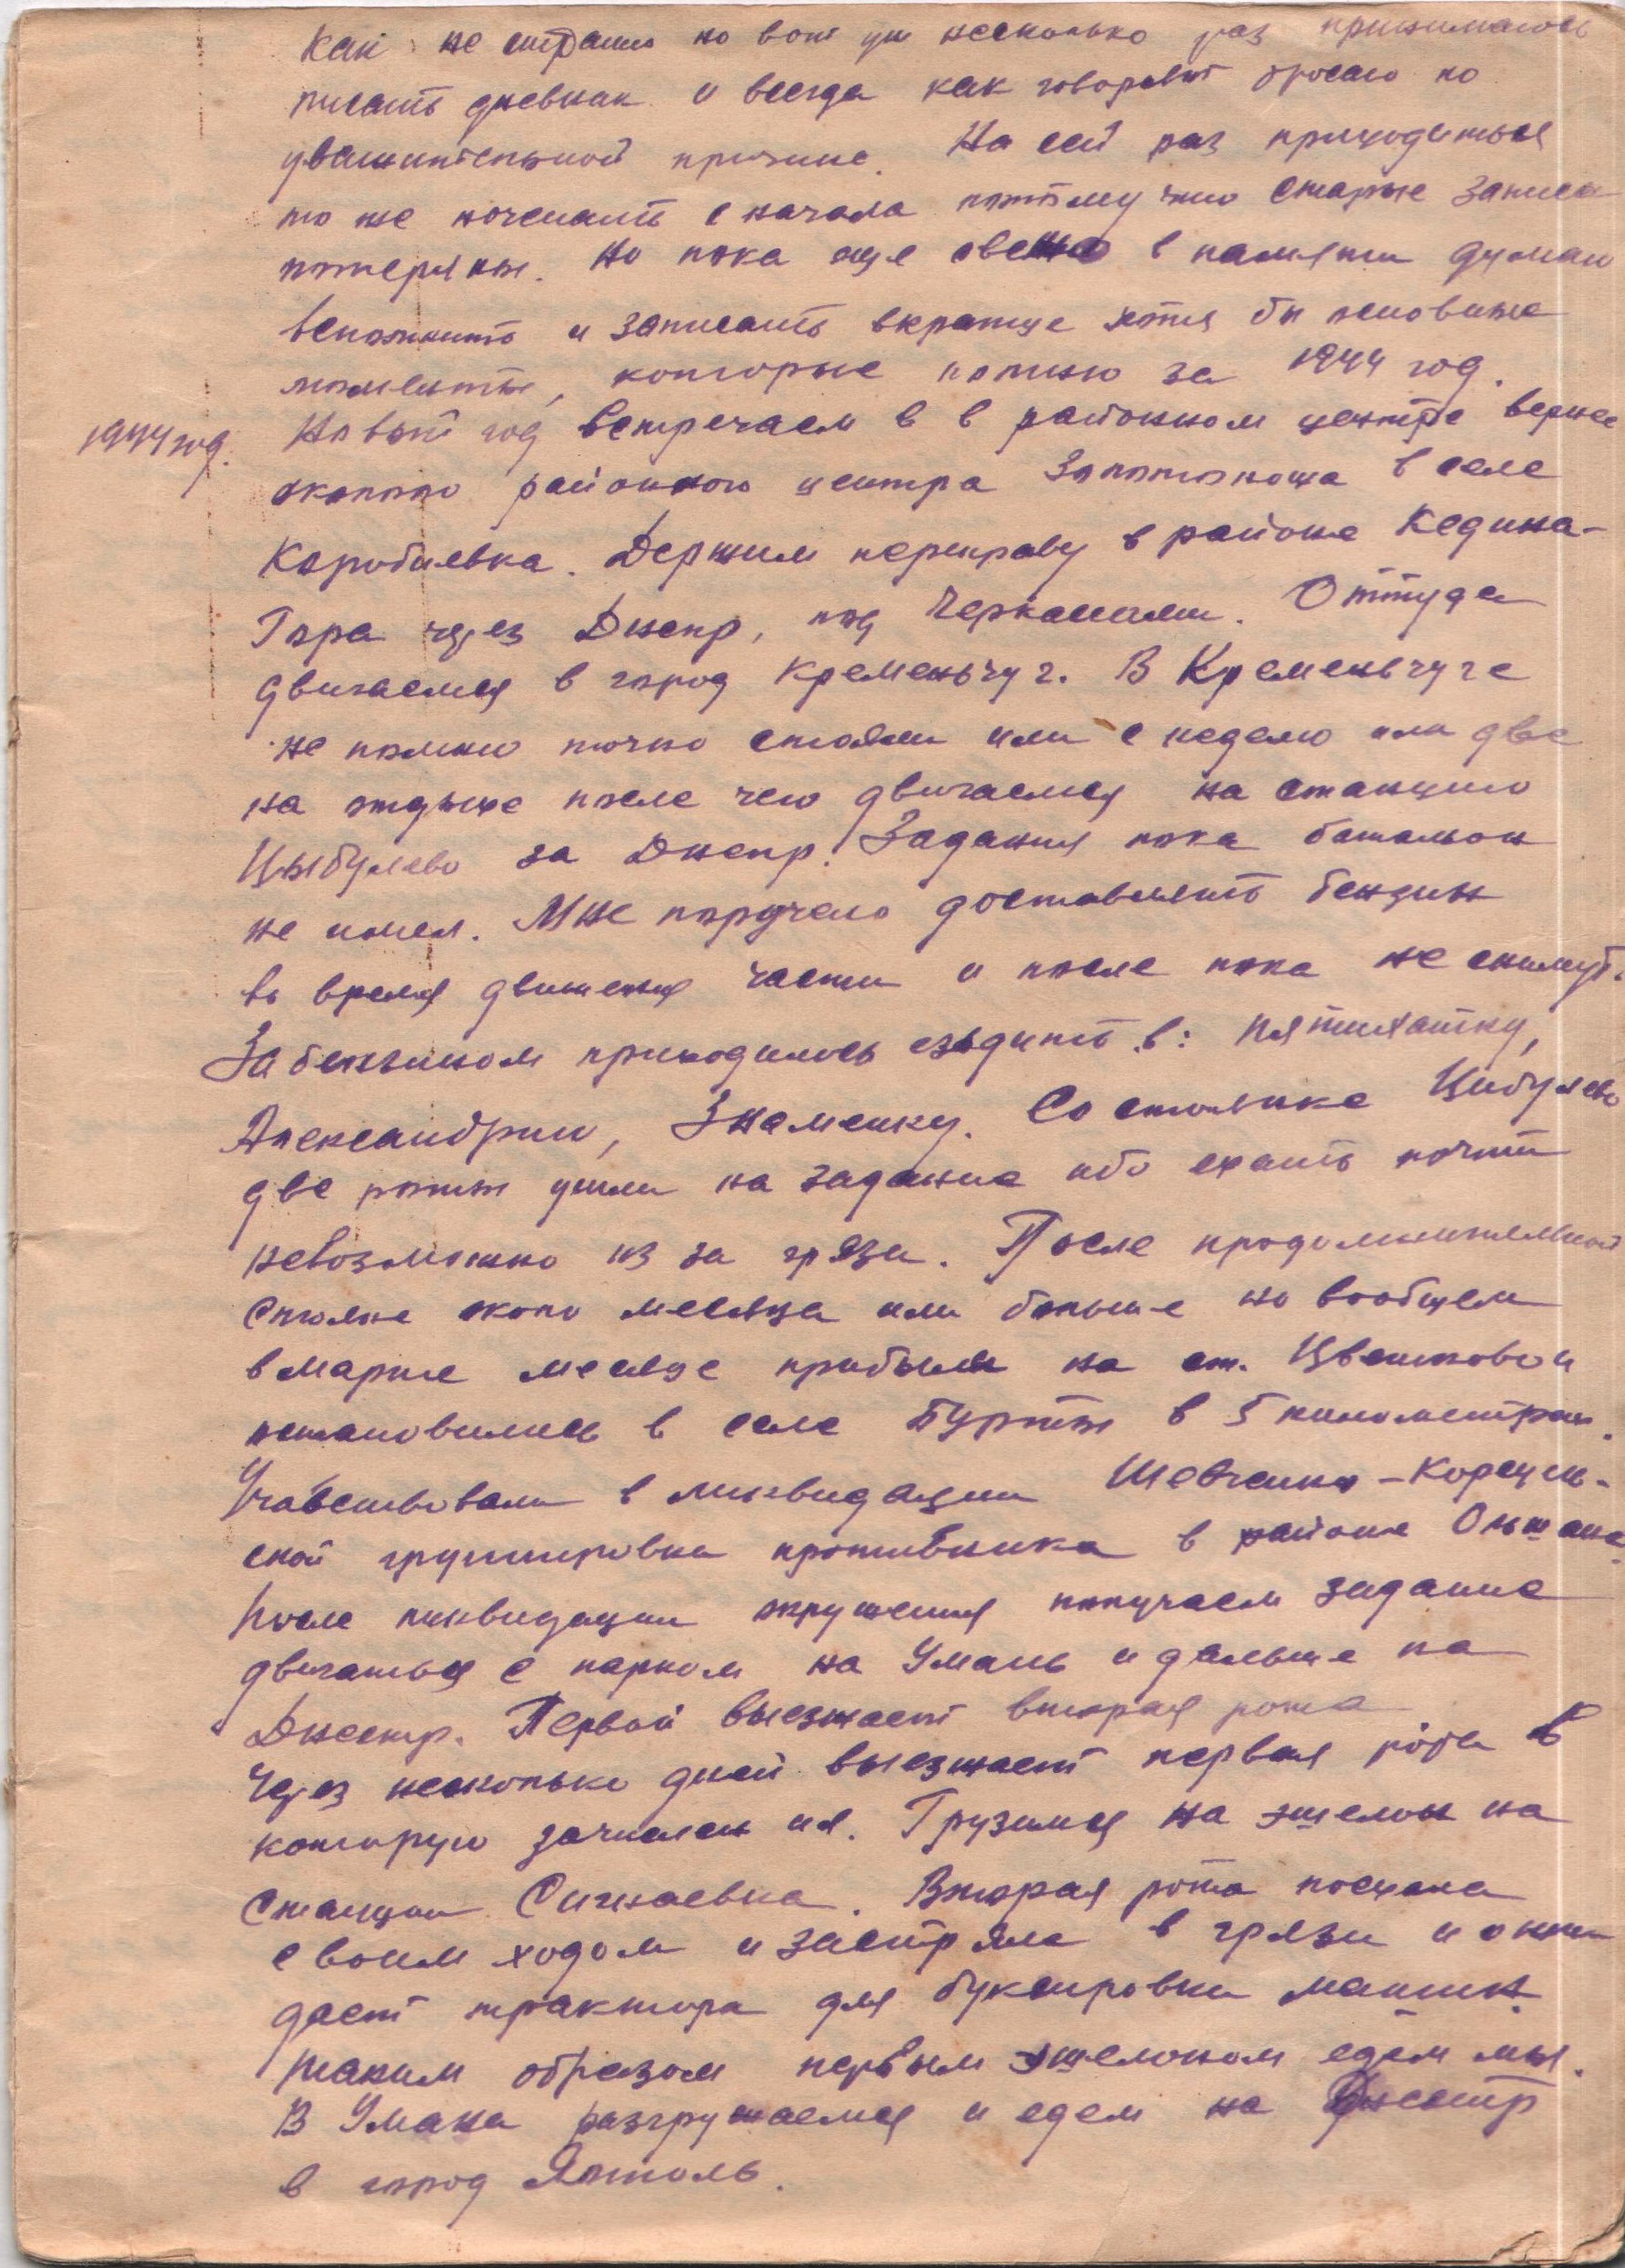 Как не странно но вот уж несколько раз принимаюсь
писать дневник и всегда как говорят бросаю по
уважительной причине. На сей раз приходиться
то же начинать с начала потому что старые записи
потеряны. Но пока еще свежо в памяти думаю
вспомнить и записать вкратце хотя бы основные
моменты, которые помню за 1944 год.
1944 год. Новый год встречаем в в районном центре вернее
около районного центра Золотоноша в селе
Коробиевка. Держим переправу в районе Кедина-
Гора через Днепр, под Черкассами. Оттуда
двигаемся в город Кременьчуг. В Кременьчуге
не помню точно стояли или с неделю или две
на отдыхе после чего двигаемся на станцию
Цыбулево за Днепр. Задания пока батальон
не имел. Мне поручено доставлять бензин
во время движения части и после пока не снимут.
За бензином приходилось езьдить в: Пятихатку,
Александрию, Знаменку. Со стоянке Цибулево
две роты ушли на задание ибо ехать почти
невозможно из за грязи. После продолжительной
стоянке около месяца или больше но вообщем
в марте месяце прибыли на ст. Цветково и
остановились в селе Бурты в 5 километрах.
Учавствовали в ликвидации Шевченко-Корсунь-
ской группировки противника в районе Ольшана.
После ликвидации окружения получаем задание
двигаться с парком на Умань и дальше на
Днестр. Первой выезжает вторая рота
Через несколько дней выезжает первая рота в
которую зачислен и я. Грузимся на эшелон на
станции Сигнаевка. Вторая рота послана
своим ходом и застряла в грязи и ожи
дает трактора для буксировки машин.
Таким образом первым эшелоном едем мы.
В Умани разгружаемся и едем на Днестр
в город Ямполь.